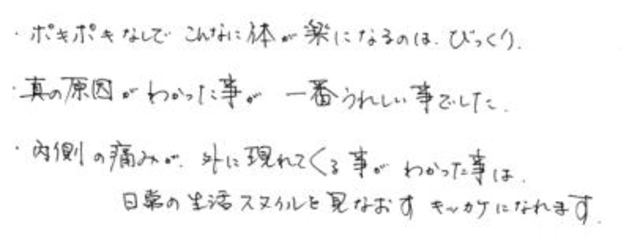 ・ポキポキなしで こんなに体が楽になるのは、びっくり.
・真の原因がわかった事が 一番うれしい事でした.
・内側の痛みが、外に現れてくる事が わかった事は、
日常の生活スタイルを見なおす キッカケになれます.